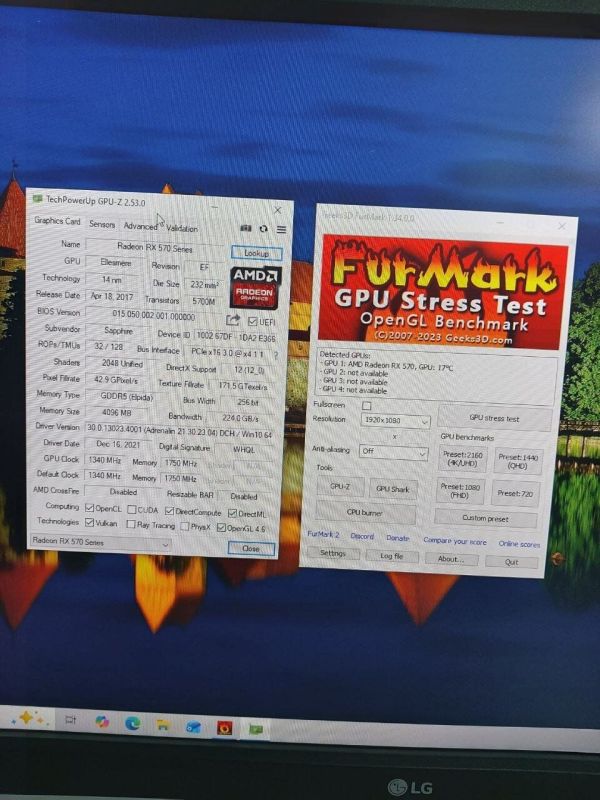 TechPowerUp GPU-Z 2.53.0
Graphics Card Sensors Advanced Validation
Name Radeon RX 570 Series Lookup
GPU Ellesmere Revision EF
Technology 14 nm Die Size 232 mm²
Release Date Apr 18, 2017 Transistors 5700M
AMD
RADEON
GRAPHICS
BIOS Version 015.050.002.001.000000 UEFI
Subvendor Sapphire Device ID 1002 67DF - 1DA2 E366
ROPs/TMUs 32 / 128 Bus Interface PCIe x16 3.0 @ x4 1.1 ?
Shaders 2048 Unified DirectX Support 12 (12_0)
Pixel Fillrate 42.9 GPixel/s Texture Fillrate 171.5 GTexel/s
Memory Type GDDR5 (Elpida) Bus Width 256 bit
Memory Size 4096 MB Bandwidth 224.0 GB/s
Driver Version 30.0.13023.4001 (Adrenalin 21.30.23.04) DCH / Win10 64
Driver Date Dec 16, 2021 Digital Signature WHQL
GPU Clock 1340 MHz Memory 1750 MHz
Default Clock 1340 MHz Memory 1750 MHz
AMD CrossFire Disabled Resizable BAR Disabled
Computing OpenCL CUDA DirectCompute DirectML
Technologies Vulkan Ray Tracing PhysX OpenGL 4.6
Radeon RX 570 Series Close
Geeks3D FurMark 1.34.0.0
FurMark
GPU Stress Test
OpenGL Benchmark
(C)2007-2023 Geeks3D.com
Detected GPUs:
- GPU 1: AMD Radeon RX 570, GPU: 17°C
- GPU 2: not available
- GPU 3: not available
- GPU 4: not available
Fullscreen
Resolution 1920x1080 GPU stress test
x
GPU benchmarks
Anti-aliasing Off
Preset:2160 (4K/UHD) Preset:1440 (QHD)
Tools
GPU-Z GPU Shark Preset:1080 (FHD) Preset:720
CPU burner Custom preset
FurMark 2 Discord Donate Compare your score Online scores
Settings Log file About... Quit
LG